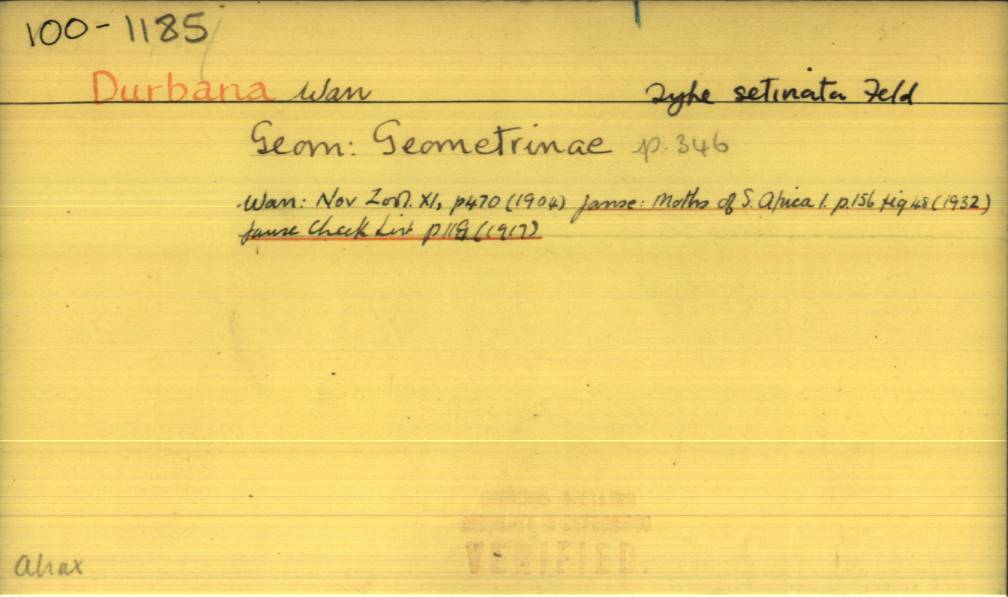 100-1185
Durbana Warr Type setinata Feld
Geom: Geometrinae p.346
Warr: Nov Zool. XI, p470 (1904) Janse: Moths of S. Africa 1. p.156 fig 48 (1932)
Janse Check List p119 (1917)